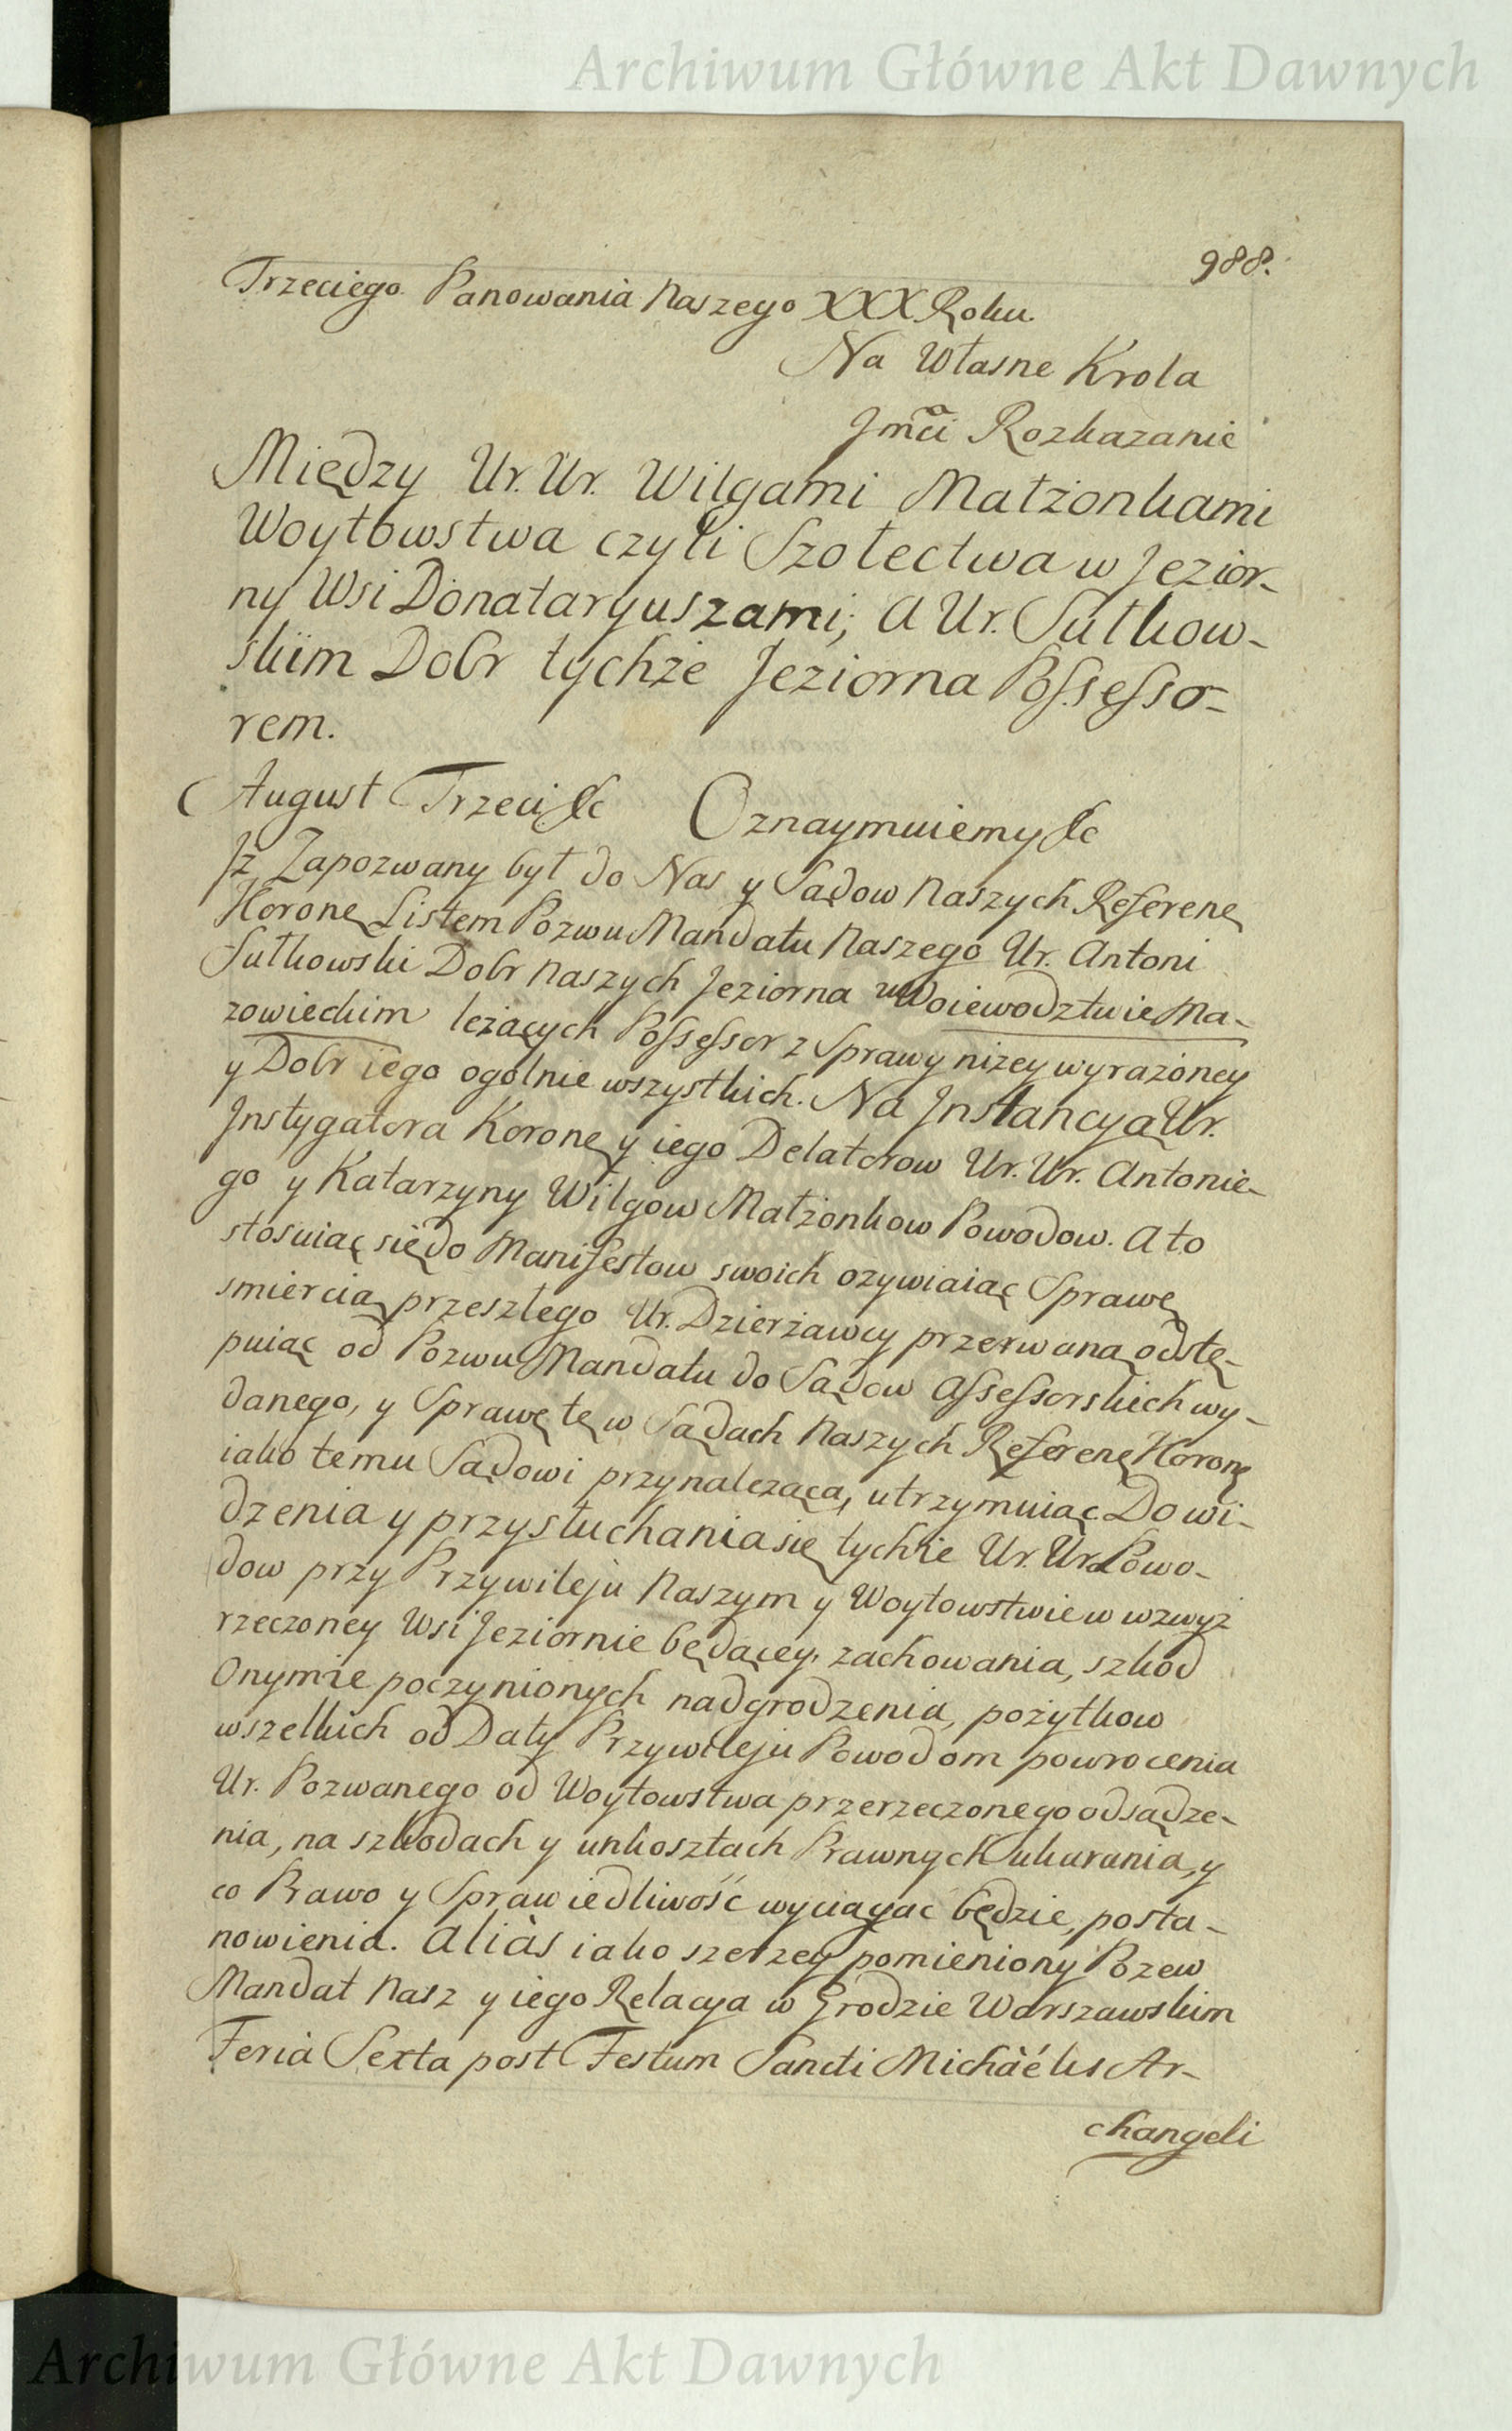 Archiwum Główne Akt Dawnych
988.
Trzeciego Panowania Naszego XXX Roku.
Na Własne Krola
Jmci Rozkazanie
Między Ur. Ur. Wilgami Małżonkami
Woytowstwa czyli Szołectwa w Jezior-
ny Wsi Donataryuszami; a Ur. Sułkow-
skim Dobr tychże Jeziorna Possesso-
rem.
August Trzeci &c Oznaymuiemy &c
Jż Zapozwany był do Nas y Sądow Naszych Referenę
Koronę Listem Pozwu Mandatu Naszego Ur. Antoni
Sułkowski Dobr Naszych Jeziorna w Woiewodztwie Ma-
zowieckim leżących Possessor z Sprawy niżey wyrażoney
y Dobr iego ogolnie wszystkich. Na Jnstancyą Ur.
Jnstygatora Koronę y iego Delatorow Ur. Ur. Antonie-
go y Katarzyny Wilgow Małżonkow Powodow. A to
stosuiąc się do Manifestow swoich ożywiaiąc Sprawę
smiercią przeszłego Ur. Dzierżawcy przerwaną odstę-
puiąc od Pozwu Mandatu do Sądow Assessorskich wy-
danego, y Sprawę tę w Sądach Naszych Referenę Koronę
iako temu Sądowi przynależącą, utrzymuiąc Do wi-
dzenia y przysłuchania się tychże Ur. Ur. Powo-
dow przy Przywileju Naszym y Woytowstwie w wzwyż
rzeczoney Wsi Jeziornie będącey, zachowania, szkod
Onymże poczynionych nadgrodzenia, pożytkow
wszelkich od Daty Przywileju Powodom powrocenia
Ur. Pozwanego od Woytowstwa przerzeczonego odsądze-
nia, na szkodach y unkosztach Prawnych ukarania, y
co Prawo y Sprawiedliwość wyciągac będzie, posta-
nowienia. Aliàs iako szerzey pomieniony Pozew
Mandat Nasz y iego Relacya w Grodzie Warszawskim
Feria Sexta post Festum Sancti Michaélis Ar-
changeli
Archiwum Główne Akt Dawnych